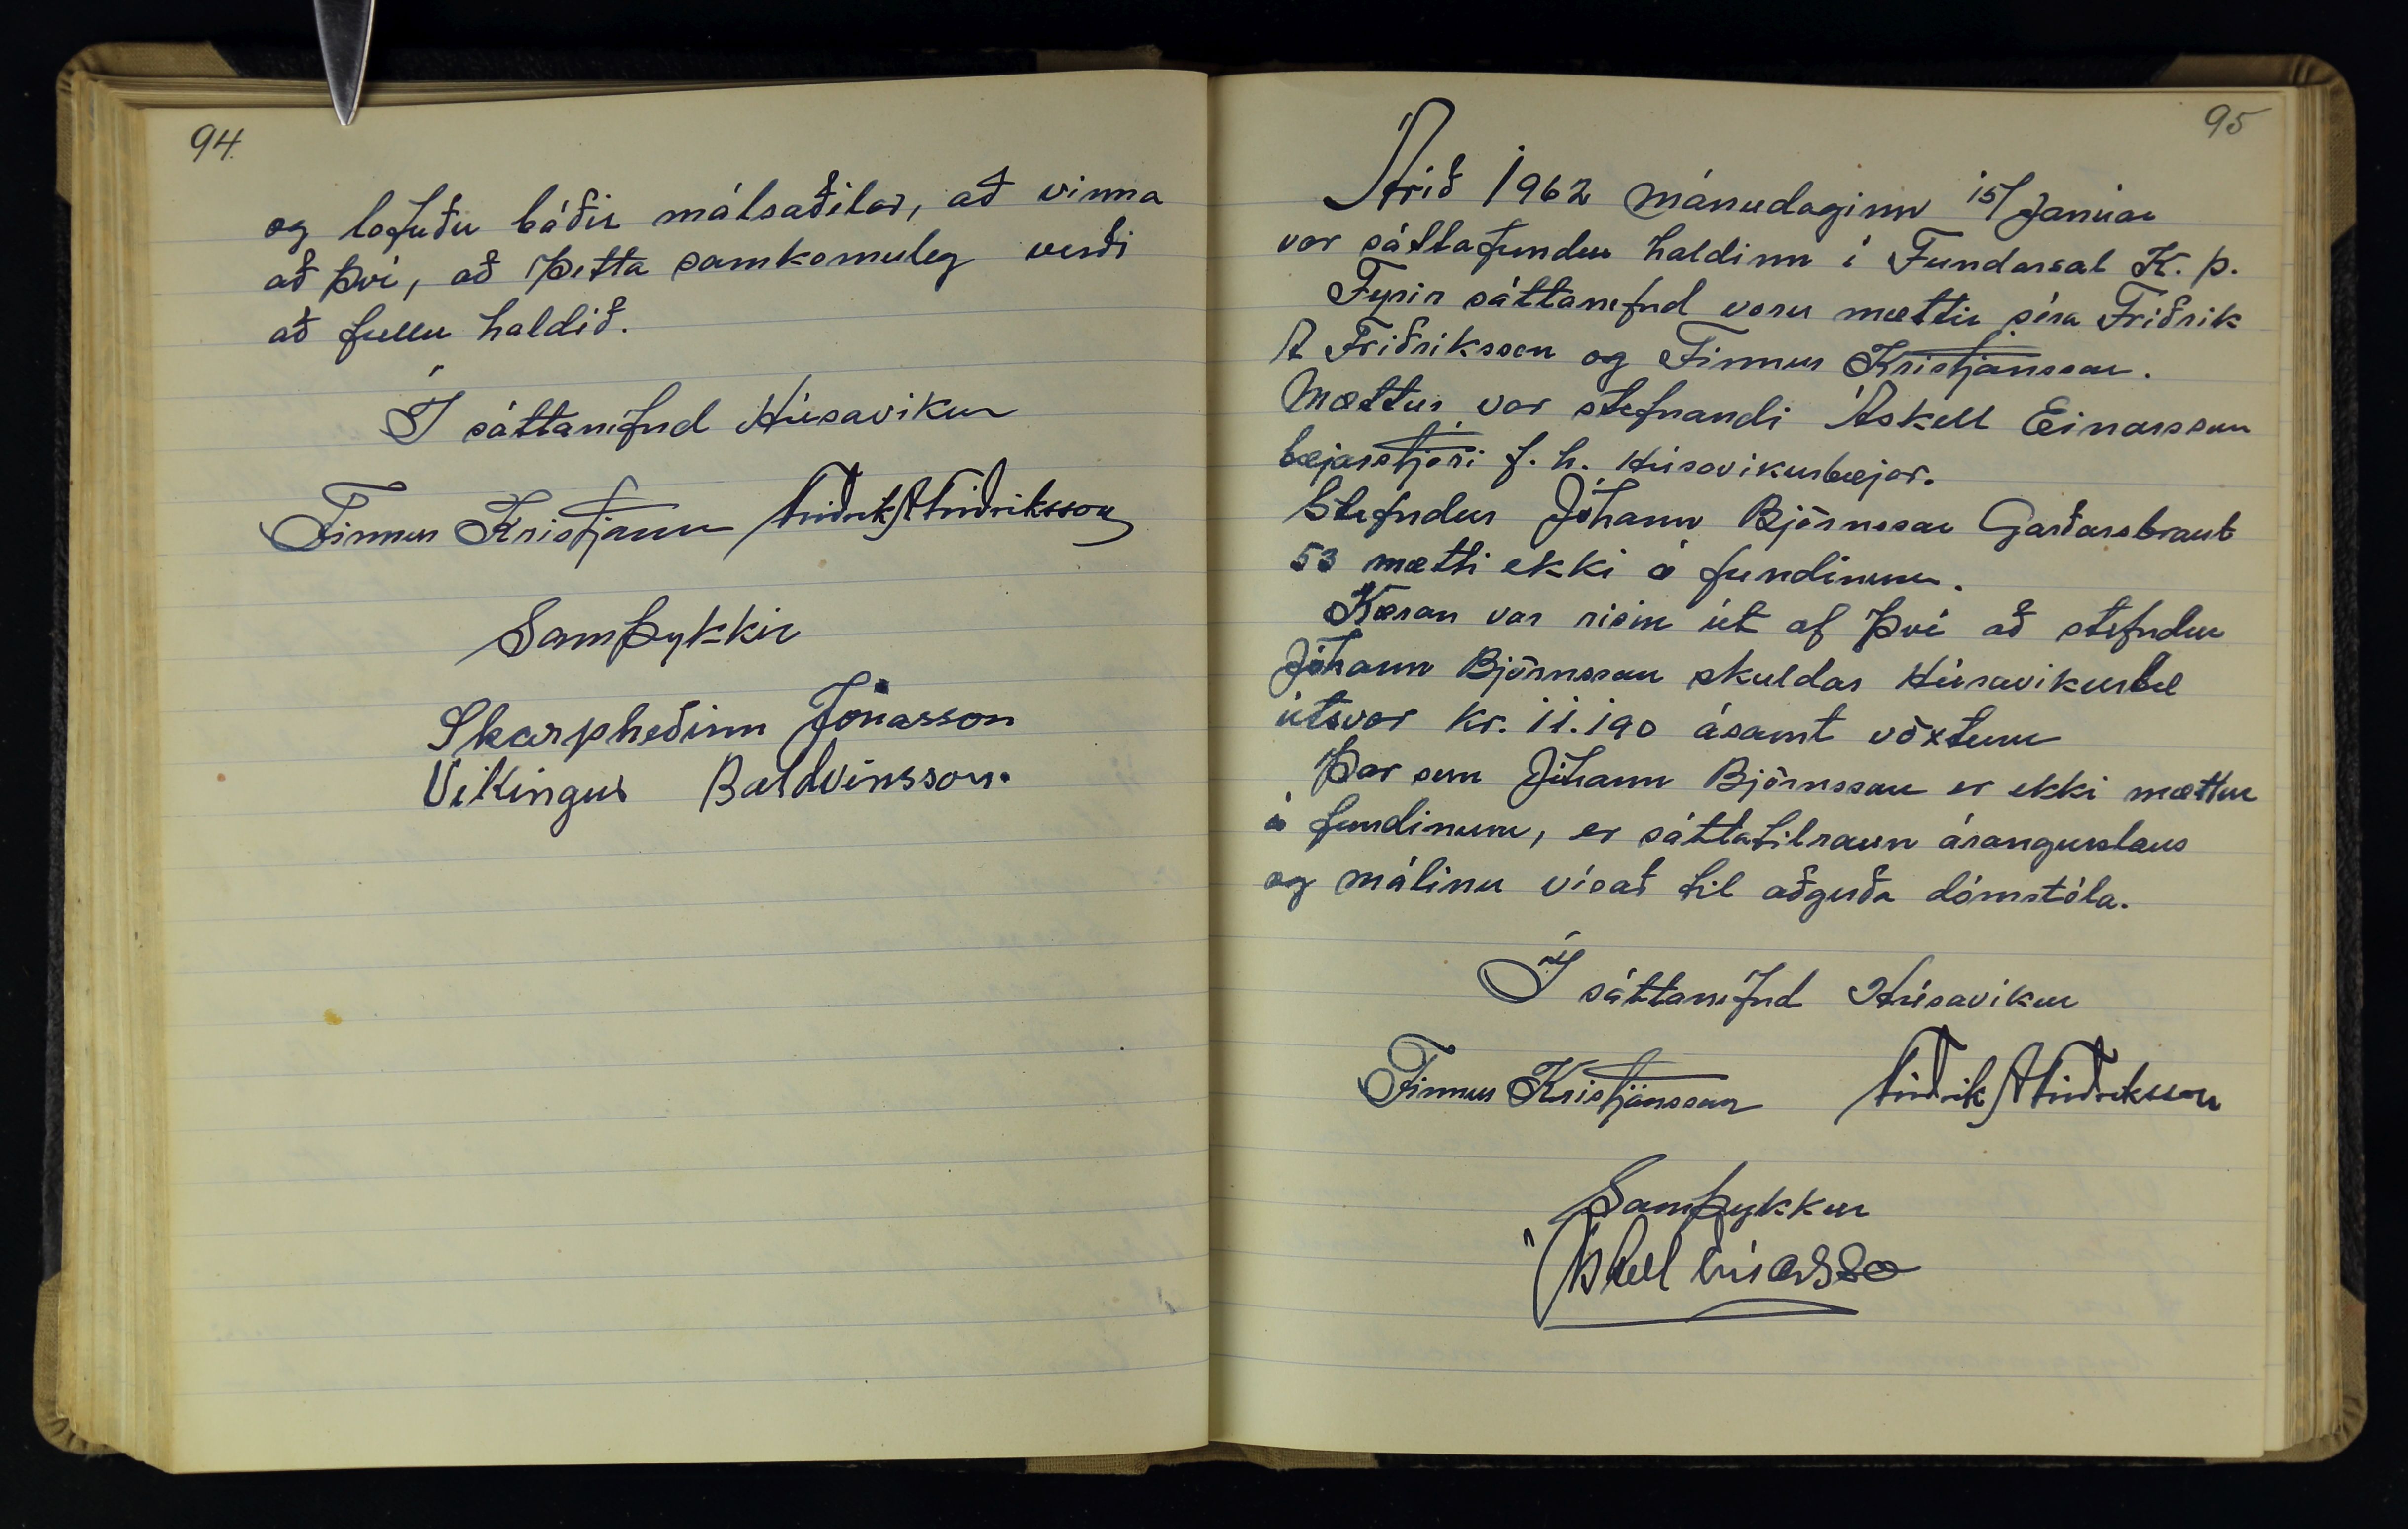 94.
og lofuðu báðir málsaðilar, að vinna
að því, að þetta samkomulag verði
að fullu haldið.
Í sáttanefnd Húsavíkur
Finnur Kristjánss Friðrik A Friðriksson
Samþykkir
Skarphéðinn Jónasson
Víkingur Baldvinsson.
95
Árið 1962 mánudaginn 15/ Januar
var sáttafundur haldinn í Fundarsal K. Þ.
Fyrir sáttanefnd voru mættir séra Friðrik
A Friðriksson og Finnur Kristjánsson.
Mættur var stefnandi Áskell Einarsson
bæjarstjóri f. h. Húsavíkurbæjar.
Stefndur Jóhann Björnsson Garðarsbraut
53 mætti ekki á fundinum.
Kæran var risin út af því að stefndur
Jóhann Björnsson skuldar Húsavíkurbæ
útsvar kr. 11.190 ásamt vöxtum
Þar sem Jóhann Björnsson er ekki mættur
á fundinum, er sáttatilraun árangurslaus
og málinu vísað til aðgerða dómstóla.
Í sáttanefnd Húsavíkur
Finnur Kristjánsson Friðrik A Friðriksson
Samþykkur
Áskell Einarsso